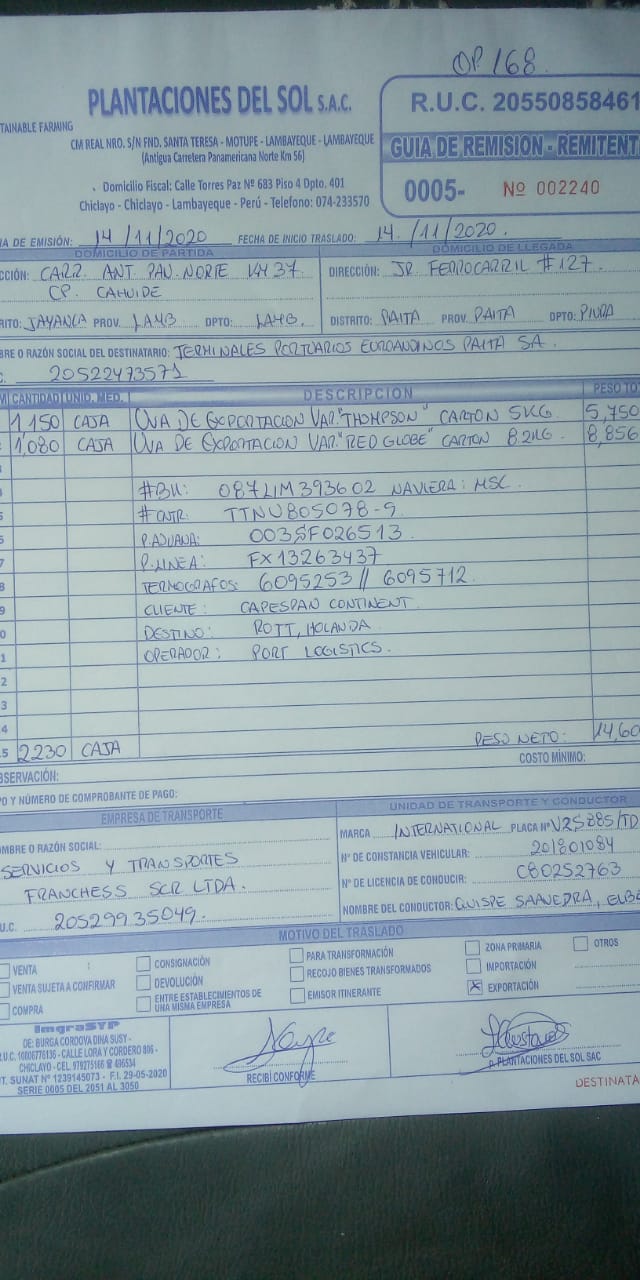 OP 168.
PLANTACIONES DEL SOL S.A.C.
TAINABLE FARMING
CM REAL NRO. S/N FND. SANTA TERESA - MOTUPE - LAMBAYEQUE - LAMBAYEQUE
(Antigua Carretera Panamericana Norte Km 56)
Domicilio Fiscal: Calle Torres Paz Nº 683 Piso 4 Dpto. 401
Chiclayo - Chiclayo - Lambayeque - Perú - Telefono: 074-233570
R.U.C. 20550858461
GUIA DE REMISIÓN - REMITENT
0005- Nº 002240
A DE EMISIÓN: 14/11/2020 FECHA DE INICIO TRASLADO: 14/11/2020.
DOMICILIO DE PARTIDA DOMICILIO DE LLEGADA
CCIÓN: CARR. ANT. PAN. NORTE KM 37 DIRECCIÓN: JR FERROCARRIL #127.
CP. CAHUIDE
RITO: JAYANCA PROV. LAMB DPTO: LAMB. DISTRITO: PAITA PROV. PAITA DPTO: PIURA
BRE O RAZÓN SOCIAL DEL DESTINATARIO: TERMINALES PORTUARIOS EUROANDINOS PAITA SA.
C. 20522473571
M CANTIDAD UNID. MED. DESCRIPCION PESO TO
1,150 CAJA UVA DE EXPORTACION VAR."THOMPSON" CARTON 5KG 5,750
1,080 CAJA UVA DE EXPORTACION VAR."RED GLOBE" CARTON 8.2KG. 8,856
#BK: 087LIM393602 NAVIERA: MSC.
#CNTR: TTNU805078-9
P.ADUANA: 003SF026513
P.LINEA: FX13263437
TERMOGRAFOS: 6095253 // 6095712.
CLIENTE: CAPESPAN CONTINENT
DESTINO: ROTT, HOLANDA
OPERADOR: PORT LOGISTICS.
PESO NETO: 14,60
5 2230 CAJA
COSTO MÍNIMO:
BSERVACIÓN:
O Y NÚMERO DE COMPROBANTE DE PAGO:
EMPRESA DE TRANSPORTE UNIDAD DE TRANSPORTE Y CONDUCTOR
OMBRE O RAZÓN SOCIAL: MARCA INTERNATIONAL PLACA Nº
SERVICIOS Y TRANSPORTES Nº DE CONSTANCIA VEHICULAR: 201801084
FRANCHESS SCR LTDA. Nº DE LICENCIA DE CONDUCIR: C80252763
U.C. 20529935049. NOMBRE DEL CONDUCTOR: QUISPE SAAVEDRA,
MOTIVO DEL TRASLADO
VENTA CONSIGNACIÓN PARA TRANSFORMACIÓN ZONA PRIMARIA OTROS
VENTA SUJETA A CONFIRMAR DEVOLUCIÓN RECOJO BIENES TRANSFORMADOS IMPORTACIÓN
COMPRA ENTRE ESTABLECIMIENTOS DE EMISOR ITINERANTE EXPORTACIÓN
UNA MISMA EMPRESA
ImgraSYP
DE: BURGA CORDOVA DINA SUSY -
CALLE LORA Y CORDERO 806 -
CHICLAYO - CEL
T. SUNAT Nº 1239145073 - F.I. 29-05-2020
SERIE 0005 DEL 2051 AL 3050
RECIBÍ CONFORME
p. PLANTACIONES DEL SOL SAC
DESTINATA